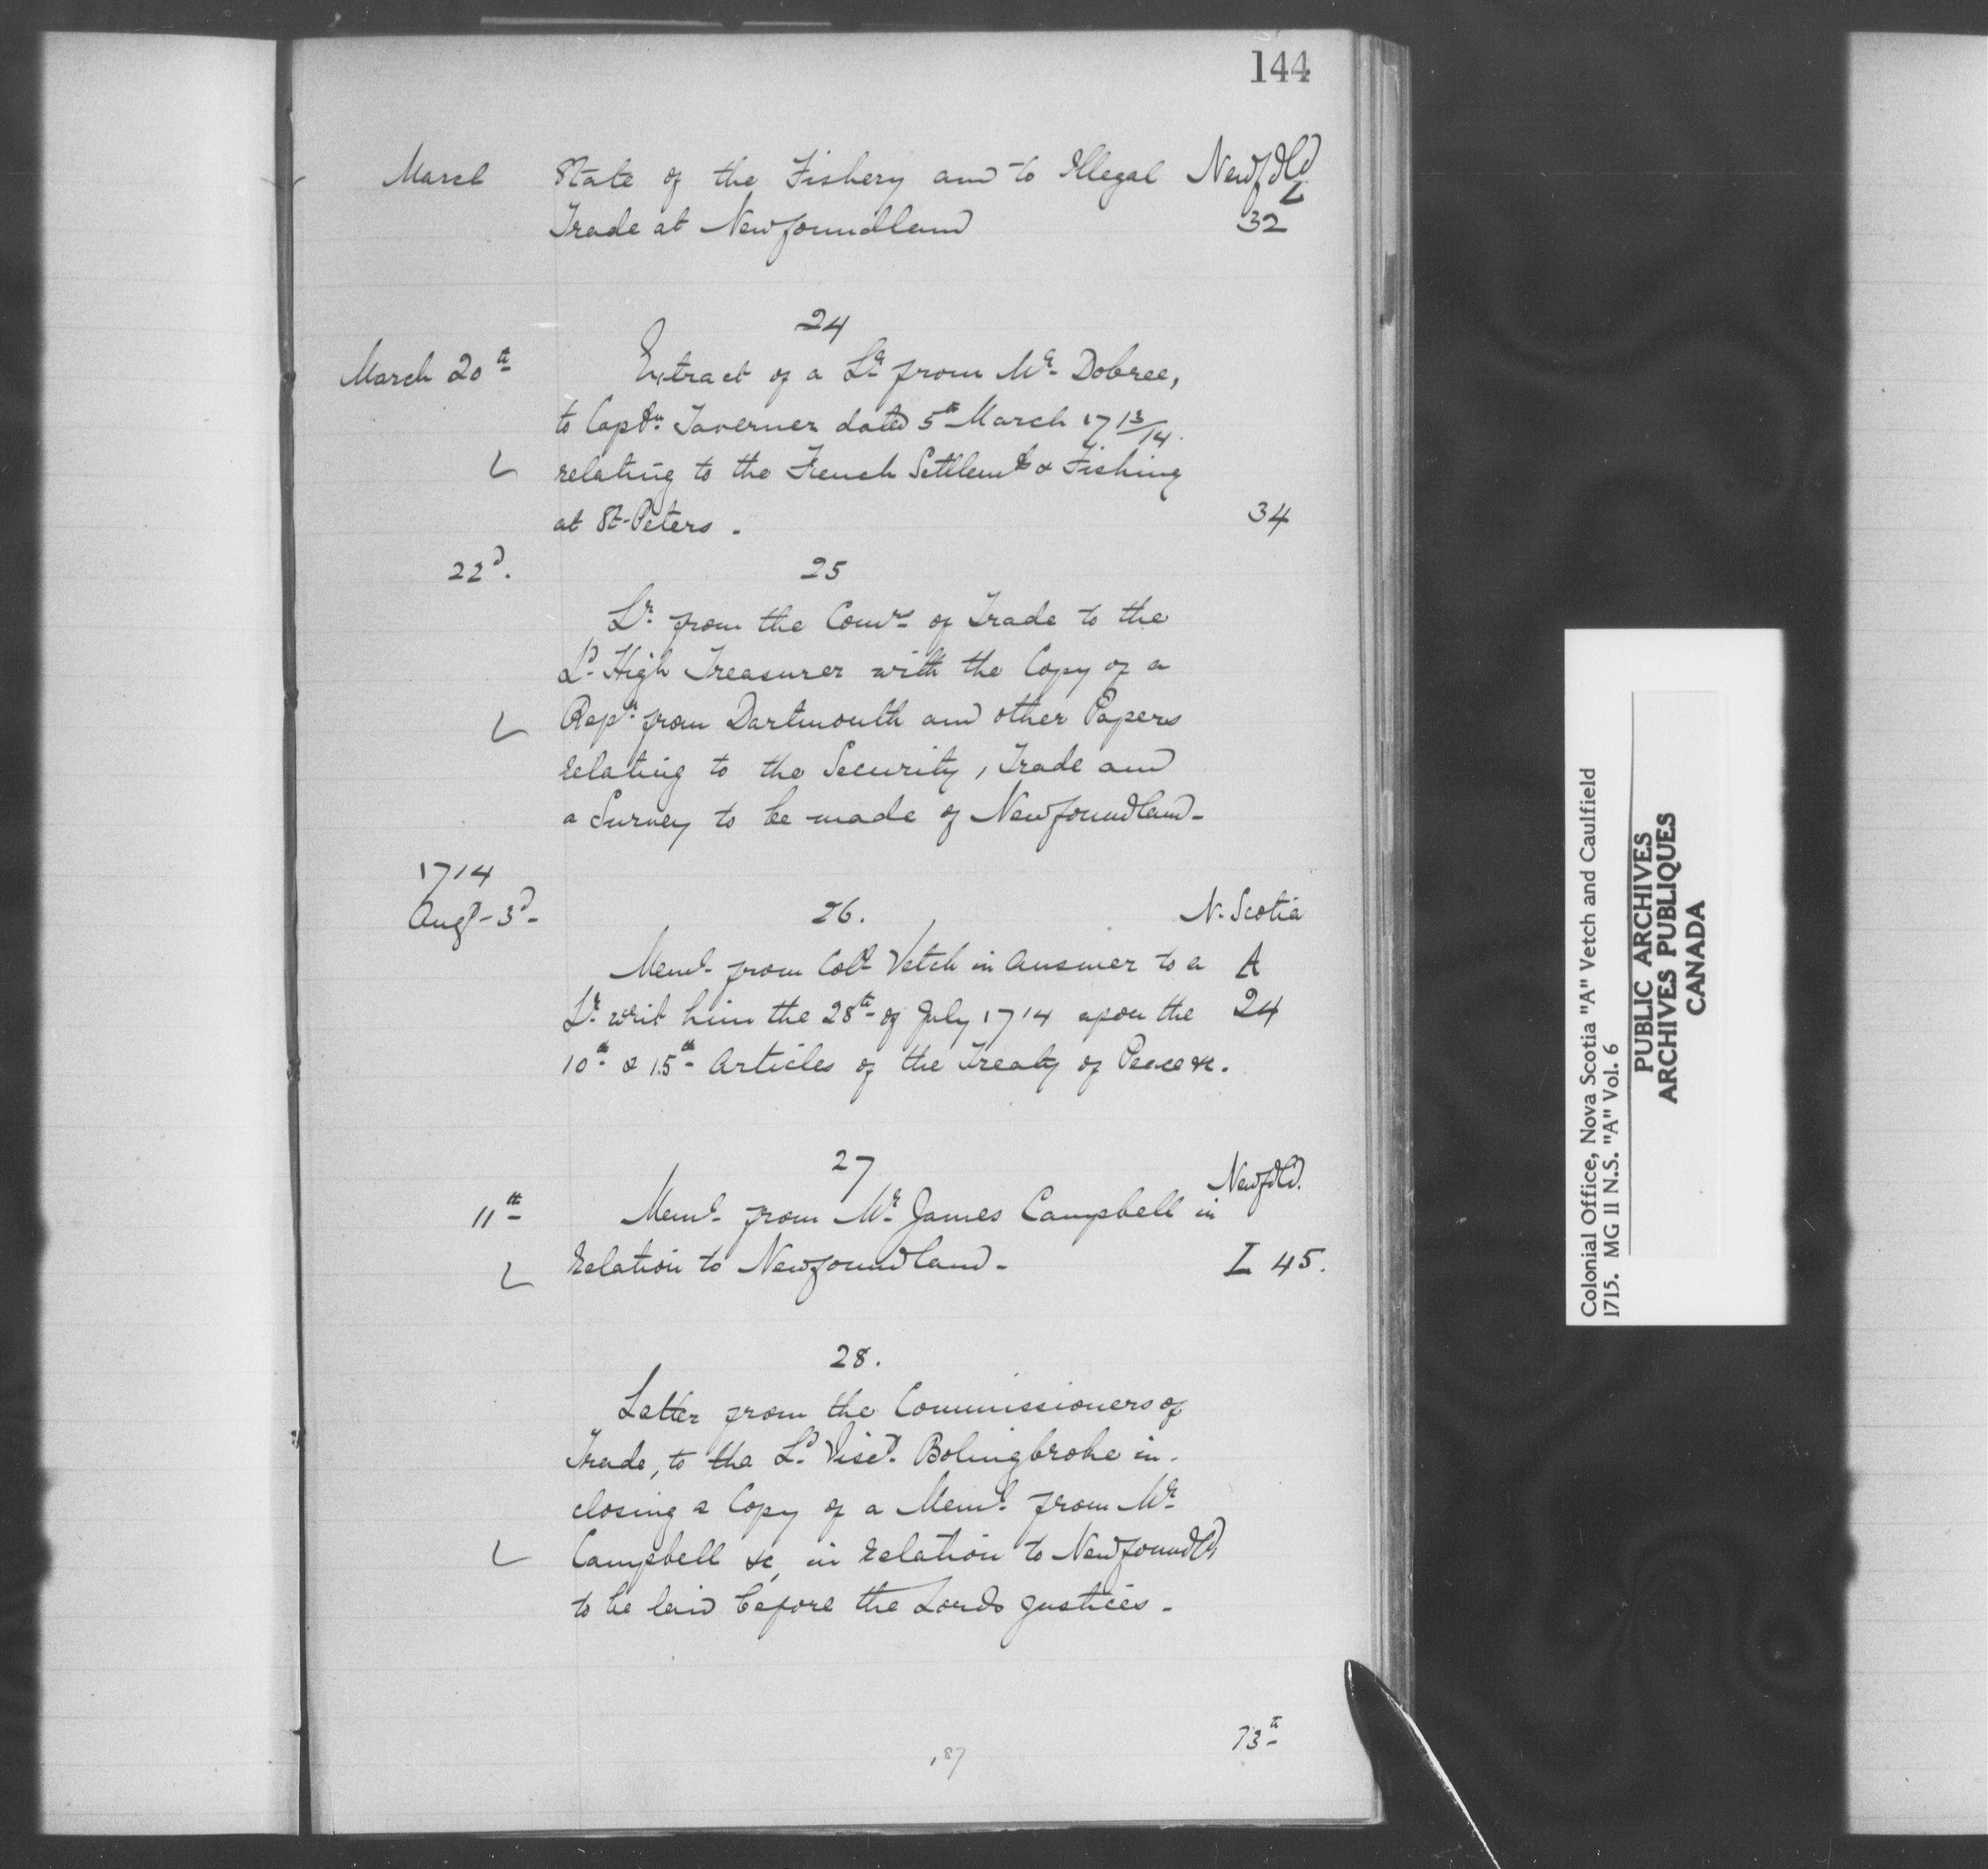 144
March State of the Fishery and to Illegal Newfdld
L
Trade at Newfoundland 32
24
March 20th Extract of a Lr. from Mr. Dobree,
to Captn. Taverner dated 5th March 17 13/14.
relating to the French Settlemts & Fishing
at St-Peters. 34
22d. 25
Lr. from the Comrs of Trade to the
Ld. High Treasurer with the Copy of a
Repn. from Dartmouth and other Papers
relating to the Security, Trade and
a Survey to be made of Newfoundland-
1714
Augt- 3d- 26. N. Scotia
Meml- from Coll. Vetch in Answer to a A
Lr. writ him the 28th- of July 1714 upon the 24
10th- & 15th- Articles of the Treaty of Peace &c.
27
Newfdld.
11th- Meml- from Mr. James Campbell in
Relation to Newfoundland- L 45.
28.
Letter from the Commissioners of
Trade, to the Ld. Viset. Bolingbroke in-
closing a Copy of a Meml. from Mr.
Campbell &c, in relation to Newfoundld
to be laid before the Lords Justices-
73th-
187
Colonial Office, Nova Scotia "A" Vetch and Caulfield
1715. MG 11 N.S. "A" Vol. 6
PUBLIC ARCHIVES
ARCHIVES PUBLIQUES
CANADA